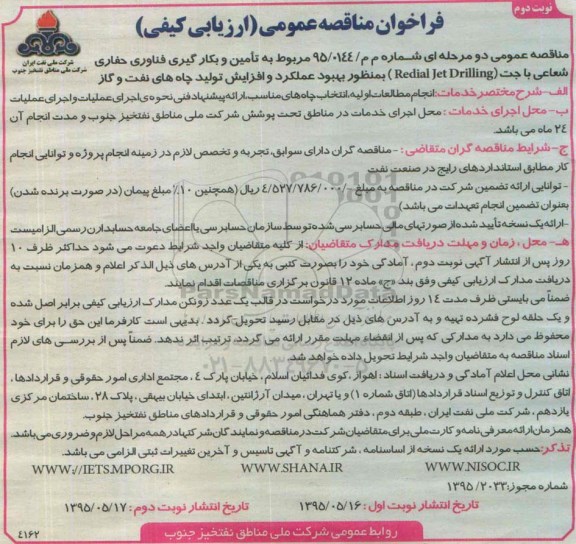 نوبت دوم
فراخوان مناقصه عمومی (ارزیابی کیفی)
شرکت ملی نفت ایران
شرکت ملی مناطق نفتخیز جنوب
مناقصه عمومی دو مرحله ای شماره م م/ ۹۵/۰۱۴۴ مربوط به تأمین و بکار گیری فناوری حفاری
شعاعی با جت (Redial Jet Drilling) بمنظور بهبود عملکرد و افزایش تولید چاه های نفت و گاز
الف-شرح مختصر خدمات: انجام مطالعات اولیه، انتخاب چاه های مناسب، ارائه پیشنهاد فنی نحوه ی اجرای عملیات و اجرای عملیات
ب- محل اجرای خدمات : محل اجرای خدمات در مناطق تحت پوشش شرکت ملی مناطق نفتخیز جنوب و مدت انجام آن
۲۴ ماه می باشد.
ج-شرایط مناقصه گران متقاضی : - مناقصه گران دارای سوابق، تجربه و تخصص لازم در زمینه انجام پروژه و توانایی انجام
کار مطابق استانداردهای رایج در صنعت نفت
- توانایی ارائه تضمین شرکت در مناقصه به مبلغ -/۴/۵۲۷/۷۸۶/۰۰۰ ریال (همچنین ۱۰٪ مبلغ پیمان (در صورت برنده شدن)
بعنوان تضمین انجام تعهدات می باشد)
-ارائه یک نسخه تأیید شده از صورتهای مالی حسابرسی شده توسط سازمان حسابرسی یا اعضای جامعه حسابدارن رسمی الزامیست
هـ- محل ، زمان و مهلت دریافت و مدارک متقاضیان: از کلیه متقاضیان واجد شرایط دعوت می شود حداکثر ظرف ۱۰
روز پس از انتشار آگهی نوبت دوم ، آمادگی خود را بصورت کتبی به یکی از آدرس های ذیل الذکر اعلام و همزمان نسبت به
دریافت مدارک ارزیابی کیفی وفق بند «ج» ماده ۱۲ قانون برگزاری مناقصات اقدام نمایند.
ضمناً می بایستی ظرف مدت ۱۴ روز اطلاعات مورد درخواست در قالب یک عدد زونکن مدارک ارزیابی کیفی برابر اصل شده
و یک حلقه لوح فشرده تهیه و به آدرس های ذیل در مقابل رسید تحویل گردد . بدیهی است کارفرما این حق را برای خود
محفوظ می دارد به مدارکی که پس از انقضاء مهلت مقرر ارائه می گردد، ترتیب اثر ندهد. ضمناً پس از بررسی های لازم
اسناد مناقصه به متقاضیان واجد شرایط تحویل داده خواهد شد.
نشانی محل اعلام آمادگی و دریافت اسناد : اهواز ، کوی فدائیان اسلام ، خیابان پارک ٤ ، مجتمع اداری امور حقوقی و قراردادها ،
اتاق کنترل و توزیع اسناد قراردادها (اتاق شماره ۱) و یا تهران ، میدان آرژانتین ، ابتدای خیابان بیهقی ، پلاک ۲۸ ، ساختمان مرکزی
یازدهم ، شرکت ملی نفت ایران ، طبقه دوم ، دفتر هماهنگی امور حقوقی و قراردادهای مناطق نفتخیز جنوب.
همزمان ارائه معرفی نامه و کارت ملی برای متقاضیان شرکت در مناقصه و نمایندگان شرکتها در همه مراحل لازم و ضروری می باشد.
تذکر: حسب مورد ارائه یک نسخه از اساسنامه ، شرکتنامه و آگهی تاسیس و آخرین تغییرات ثبتی الزامی می باشد.
WWW.NISOC.IR WWW.SHANA.IR WWW://IETS.MPORG.IR
شماره مجوز: ۲۰۳۳ /۱۳۹۵
تاریخ انتشار نوبت اول : ۱۳۹۵/۰۵/۱۶ تاریخ انتشار نوبت دوم : ۱۳۹۵/۰۵/۱۷
روابط عمومی شرکت ملی مناطق نفتخیز جنوب
٤١٦٢